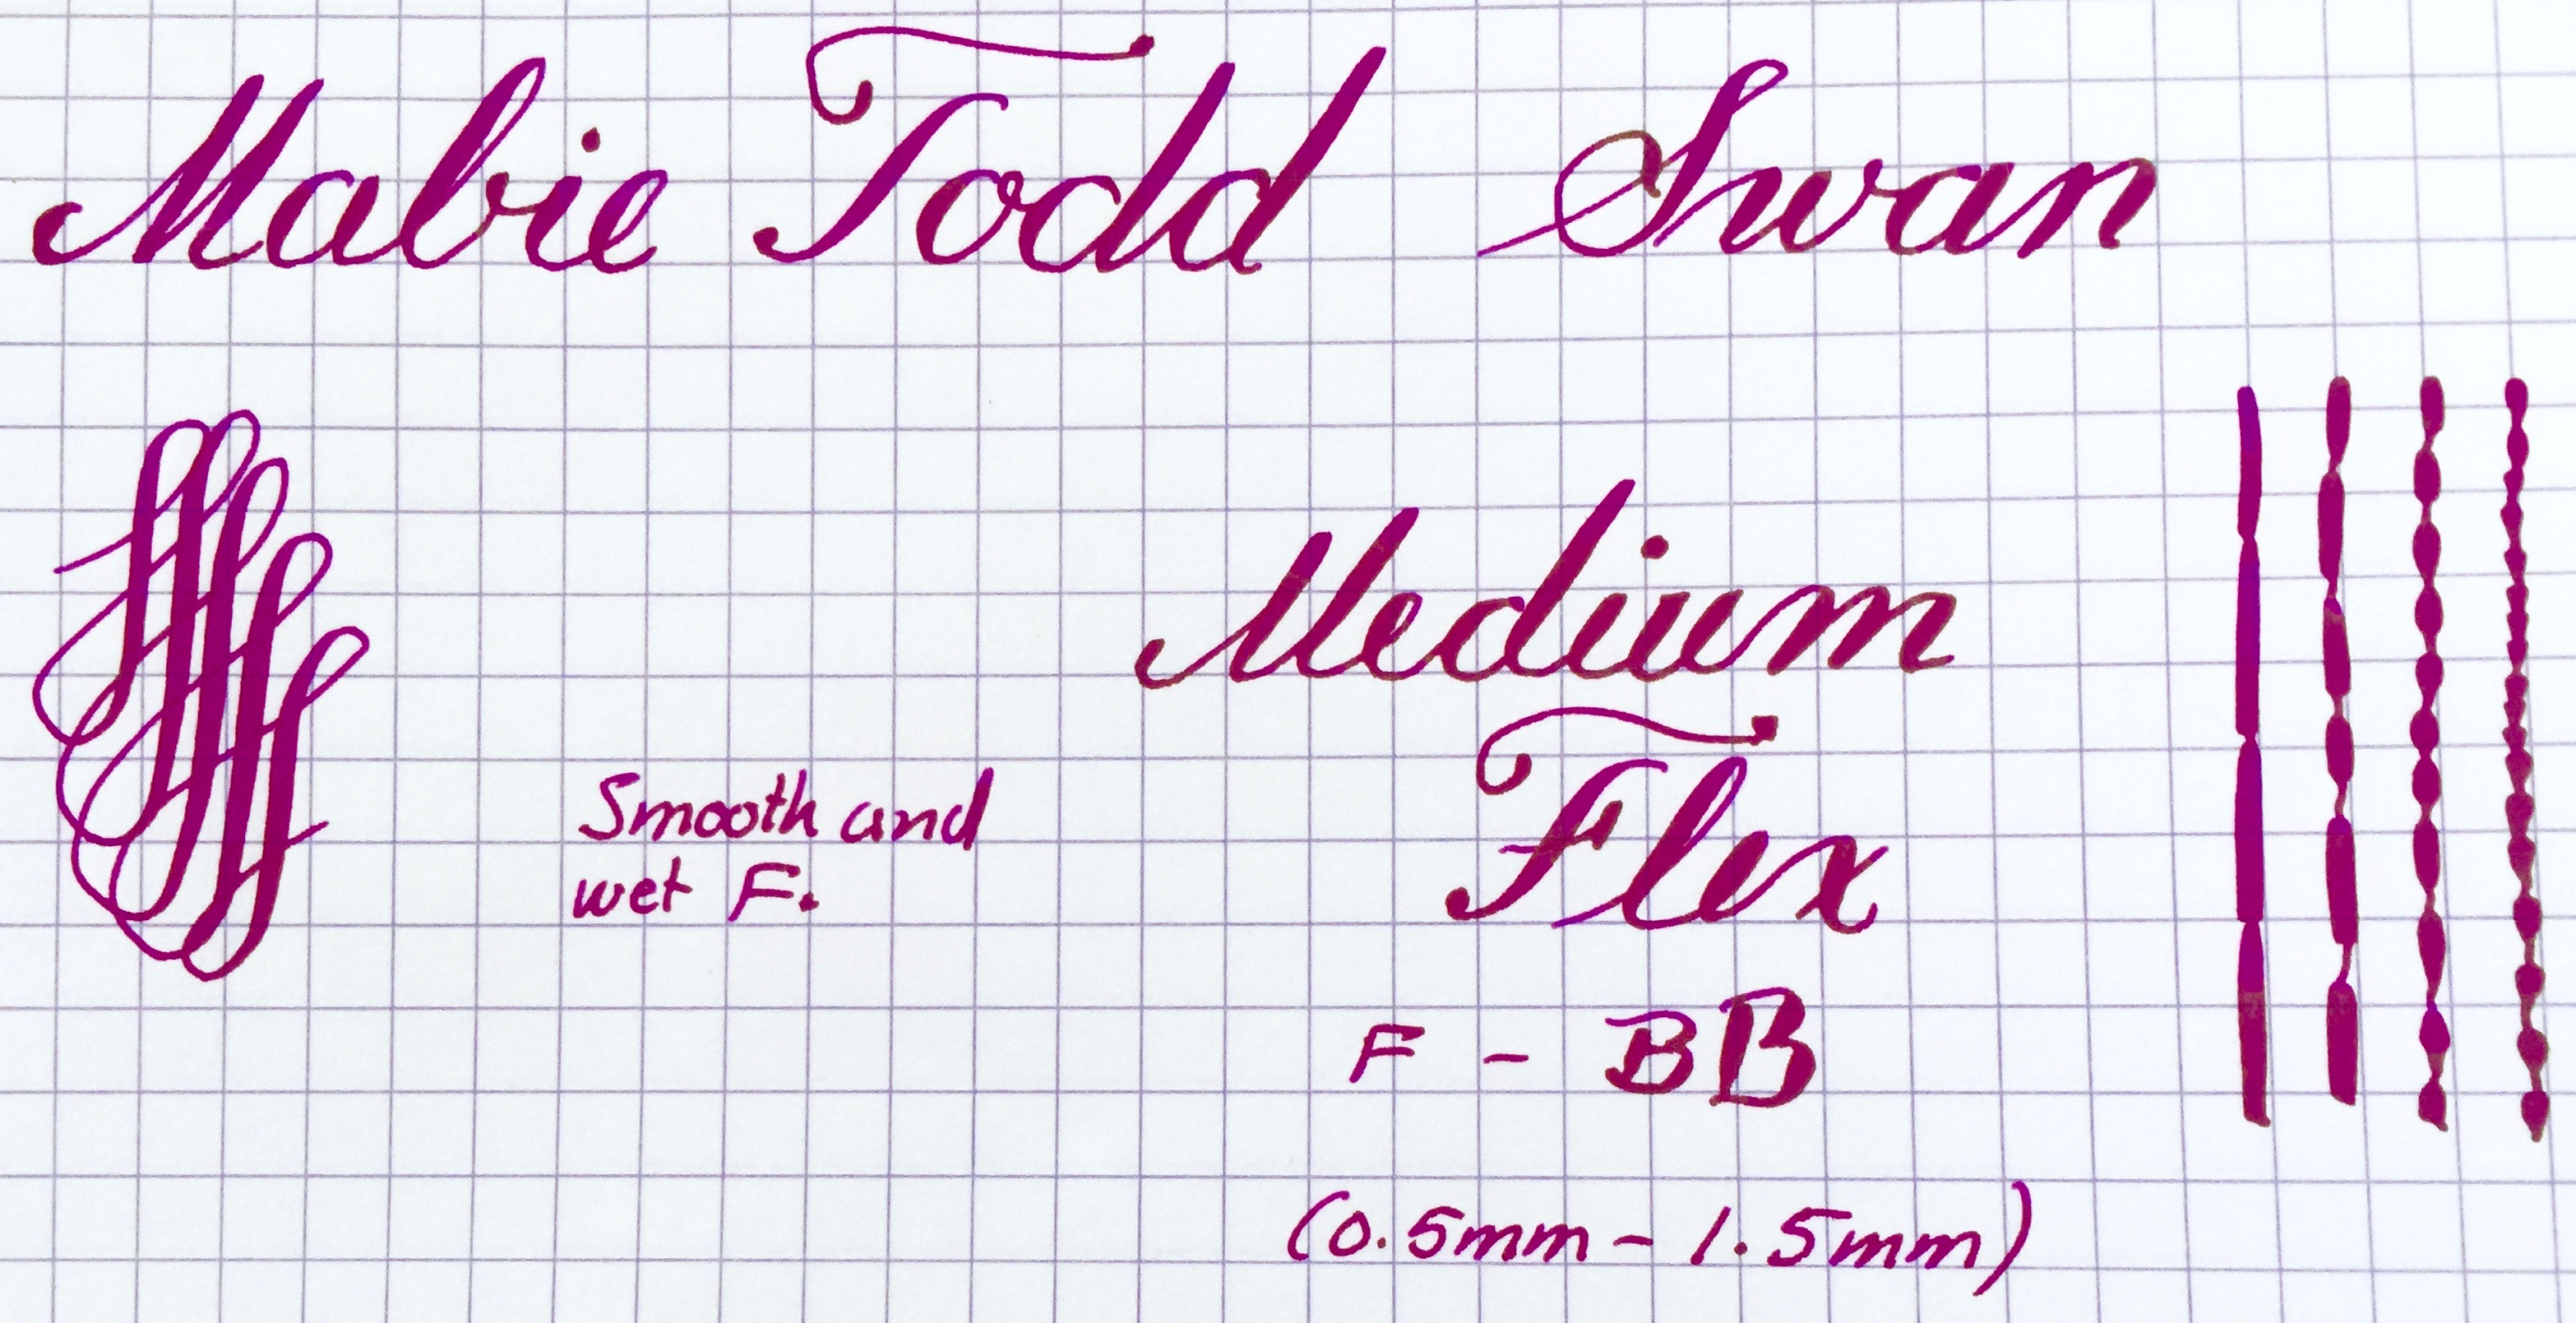 Mabie Todd Swan
Medium
Flex
Smooth and
wet F.
F - BB
(0.5mm - 1.5mm)